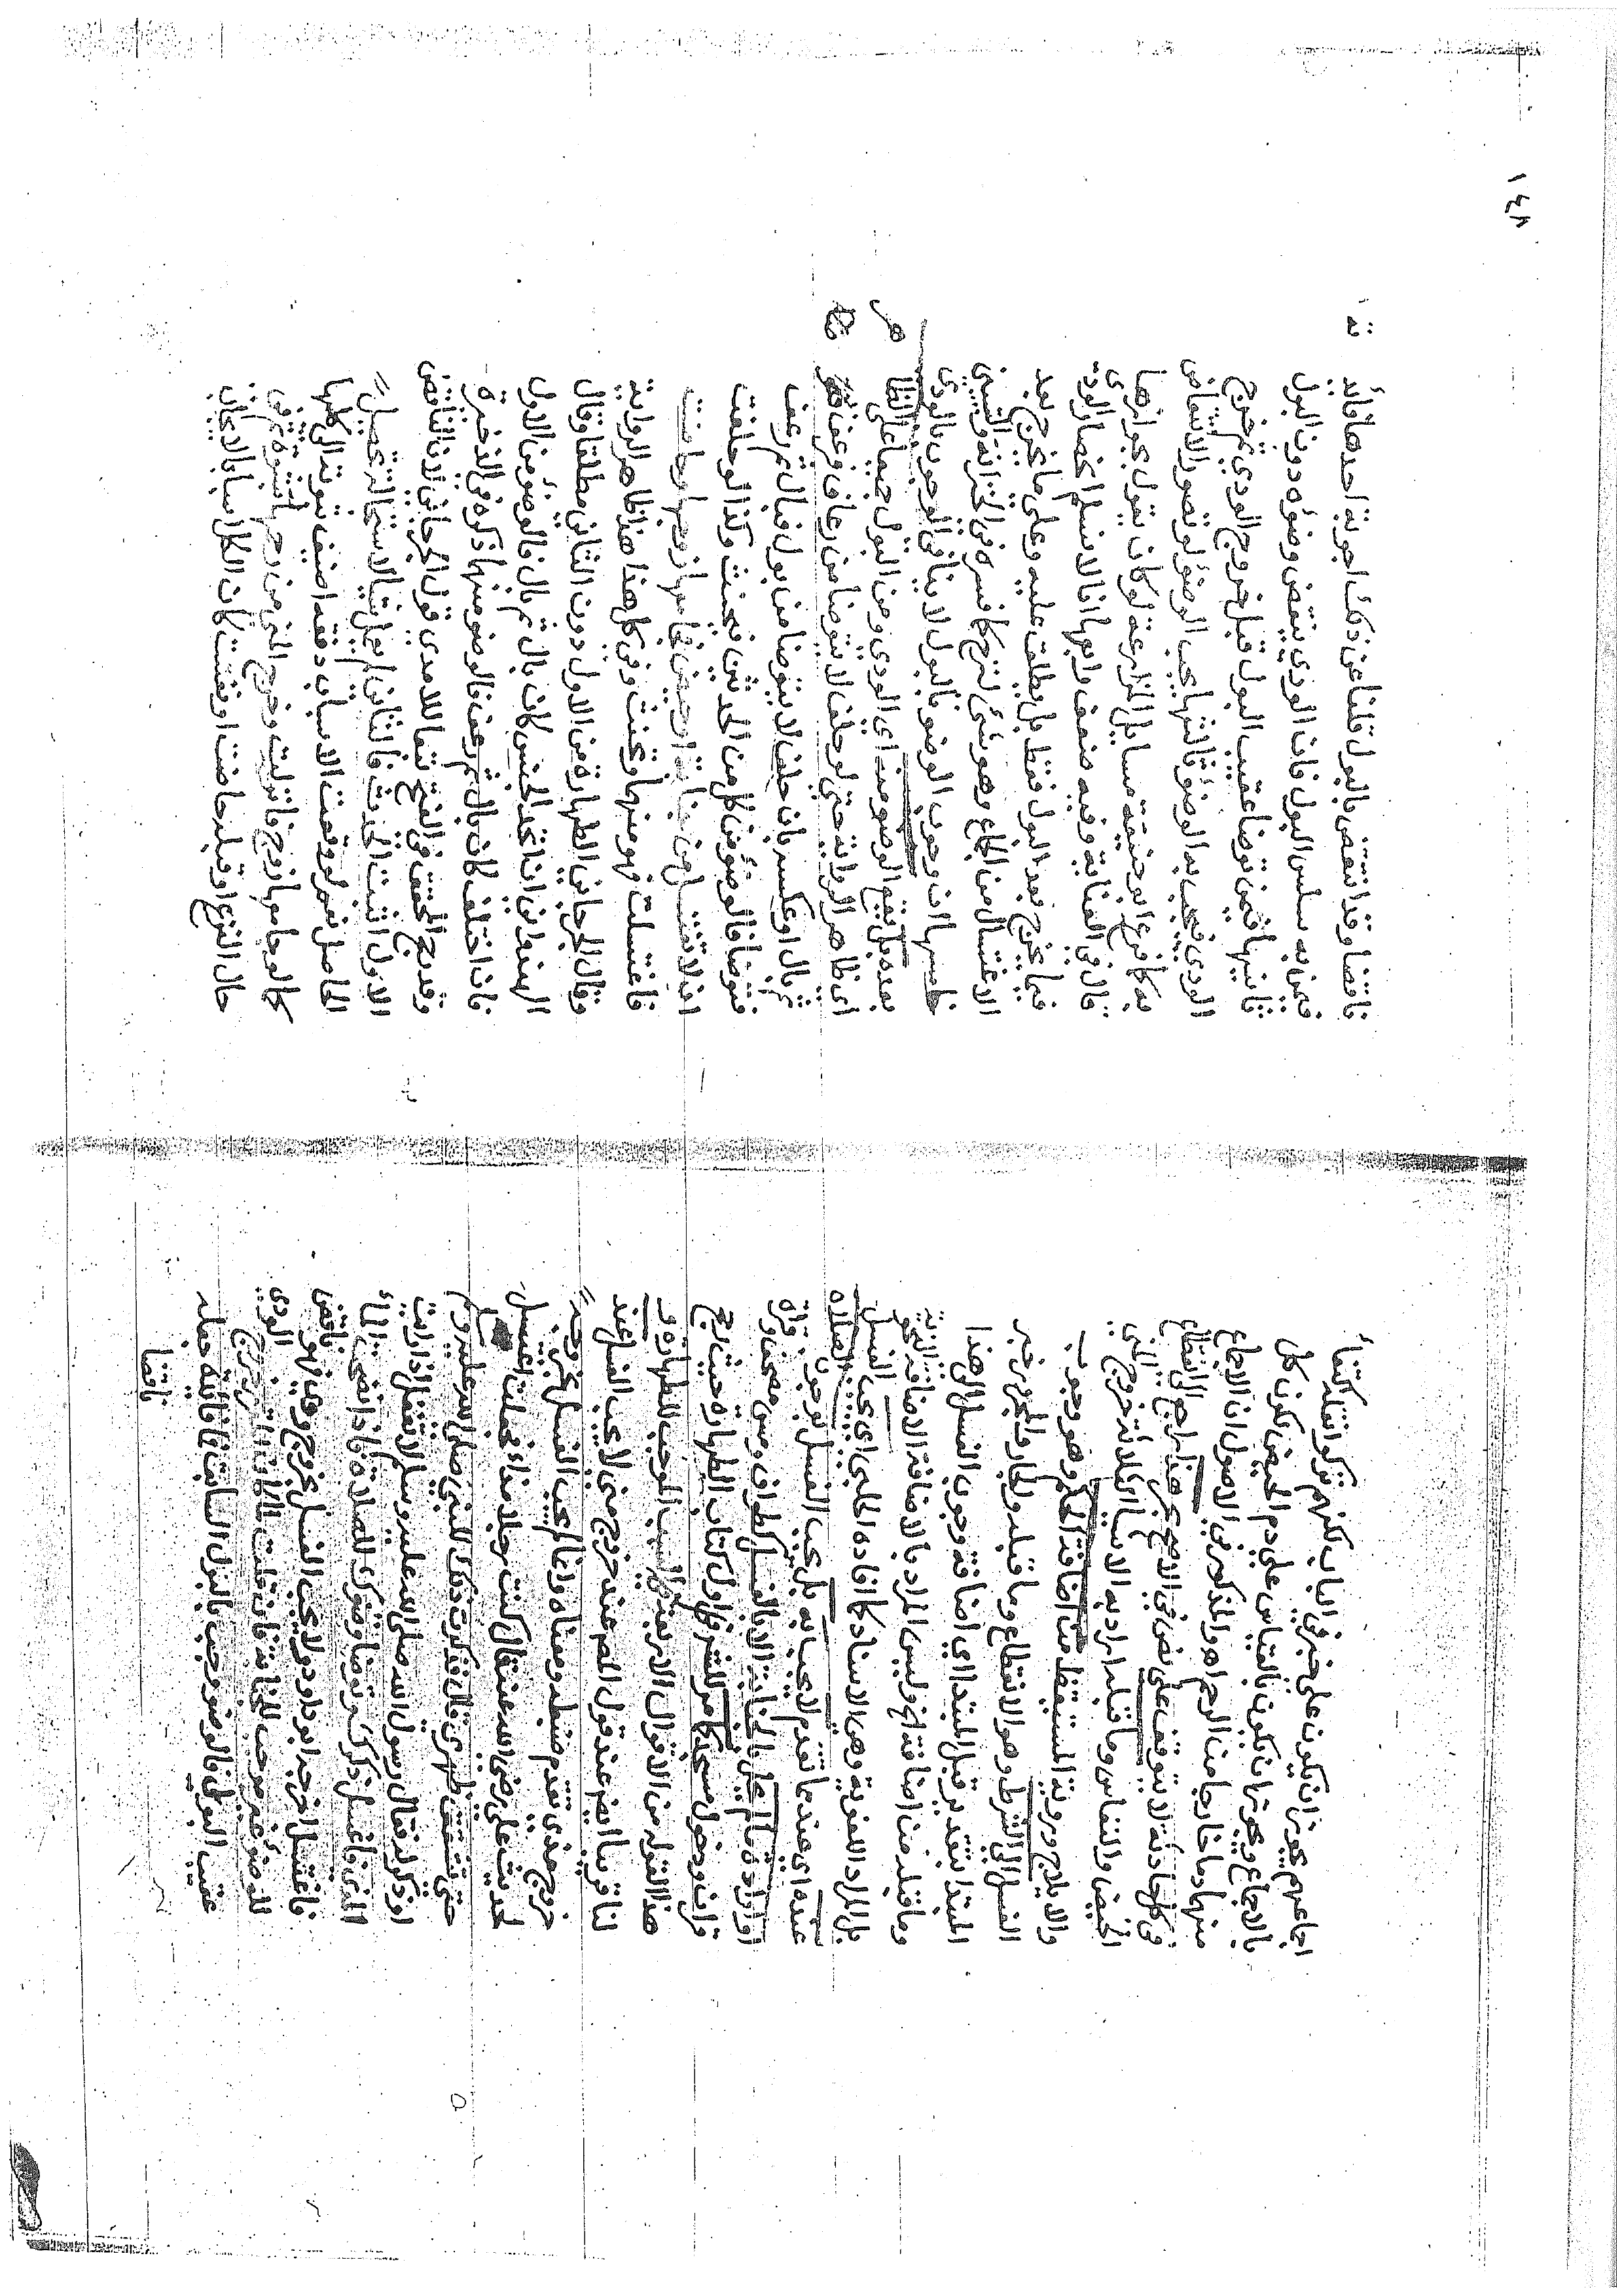 اجماعهم يجوز ان يكون على خبر في الباب لكنهم تركوا نقله اكتفاء
بالاجماع ويجوز ان يكون بالقياس على دم الحيض لكون كل
منهما دما خارجا من الرحم اهـ والمذكور في الاصول ان الاجماع
في كل حادثة لا يتوقف على نص في الاصح بحر هذا راجع الى انقطاع
الحيض والنفاس وما قبله اراد به الاسباب الثلاثة خروج المني
والايلاج ورؤية المستيقظ من اضافة الحكم وهو وجوب
الغسل الى الشرط وهو الانقطاع وما قبله والجار والمجرور خبر
المبتدا بتقدير قبل المبتدا اي اضافة وجوب الغسل الى هذا
وما قبله من اضافة الخ وليس المراد بالاضافة الاضافة النحوية
بل المراد اللغوية وهي الاسناد كما افاده الحلبي اي يجب الغسل
عنده اي عند ما تقدم لا يجب به بل يجب الغسل بوجوب الصلاة
او ارادة ما لم يحل بالجنابة الا بالغسل كطواف ومس مصحف وقراة
قران ودخول مسجد كما مر للشرح اول كتاب الطهارة حيث رجح
هذا القول من الاقوال الاربعة في السبب الموجب للطهارة
لنا قريبا ايضا عند قول المصنف عند خروج مني لا يجب الغسل عند
خروج مذي تقدم ضبطه ومعناه وانما لم يجب الغسل بخروجه
لحديث علي رضي الله عنه قال كنت رجلا مذاء فجعلت اغتسل
حتى تشقق ظهري قال فذكرت ذلك للنبي صلى الله عليه وسلم
او ذكر له فقال رسول الله صلى الله عليه وسلم لا تفعل اذا رايت
المذي فاغسل ذكرك وتوضا وضوءك للصلاة فاذا نضحت الماء
فاغتسل اخرجه ابو داود ولا يجب الغسل بخروج ودي فهو ناقض
للوضوء غير موجب للجنابة فان قلت الودي
عقيب البول فالوضوء وجب بالبول السابق فما فائدة جعله
ناقضا
١٤٨
ناقضا وقد انتقض بالبول قلنا عن ذلك اجوبة احدها فائد
فيمن به سلس البول فان الودي ينقض وضوءه دون البول
ثانيها فيمن توضا عقيب البول قبل خروج الودي ثم خرج
الودي فيجب به الوضوء ثالثها يجب الوضوء لو تصور الانتقاض
به كما فرع ابو حنيفة مسايل المزارعة لو كان يقول بجوازها
قال في الغناية وفيه ضعف رابعها انا لا نسلم انحصار الودي
فيما يخرج بعد البول فقط بل يطلق عليه وعلى ما يخرج بعد
الاغتسال من الجماع وهو شيء لزج كما فسره في الخزانة والتبيين
خامسها ان وجوب الوضوء بالبول لا ينافي الوجوب بالودي
بعده بل يقع الوضوء منه اي الودي ومن البول جميعا على الظا
اي ظاهر الرواية حتى لو حلف لا يتوضا من رعاف فرعف ثم
بال او عكسه بان حلف لا يتوضا من بول فبال ثم رعف
فتوضا فالوضوء من كل من الحدثين فيحنث وكذا لو حلفت
ان لا تغتسل من جنابة او حيض فجامعها زوجها وحاضت
فاغتسلت فهو منهما وتحنث وفي كل هذا هذا ظاهر الرواية
وقال الجرجاني الطهارة من الاول دون الثاني مطلقا وقال
الهندواني ان اتحد الجنس كان بال ثم بال فالوضوء من الاول
فان اختلف كان بال ثم رعف فالوضوء منهما ذكره في الذخيرة
وقد رجح المحقق في الفتح تبعا للآمدي قول الجرجاني لان الناقض
الاول اثبت الحدث فالثاني لم يعمل شيا لاستحالة تحصيل
الحاصل نعم لو وقعت الاسباب دفعة اضيف ثبوته الى كلها
كما لو جامعها زوج فانزلت وخرج المني من رحمها
حال النزع او قبله حاضت او نفست كان الكل اسبابا لايجاب